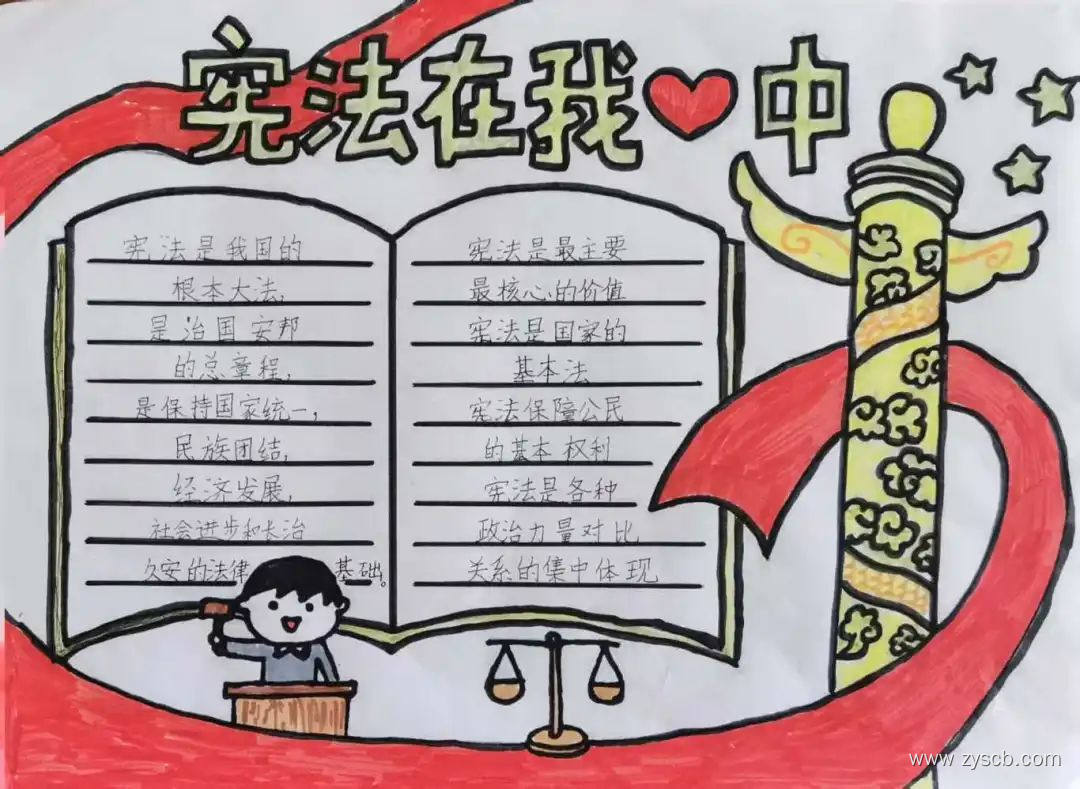 宪法在我中
宪法是我国的
根本大法,
是治国安邦
的总章程,
是保持国家统一,
民族团结,
经济发展,
社会进步和长治
久安的法律基础。
宪法是最主要
最核心的价值
宪法是国家的
基本法
宪法保障公民
的基本权利
宪法是各种
政治力量对比
关系的集中体现
www.zyscb.com